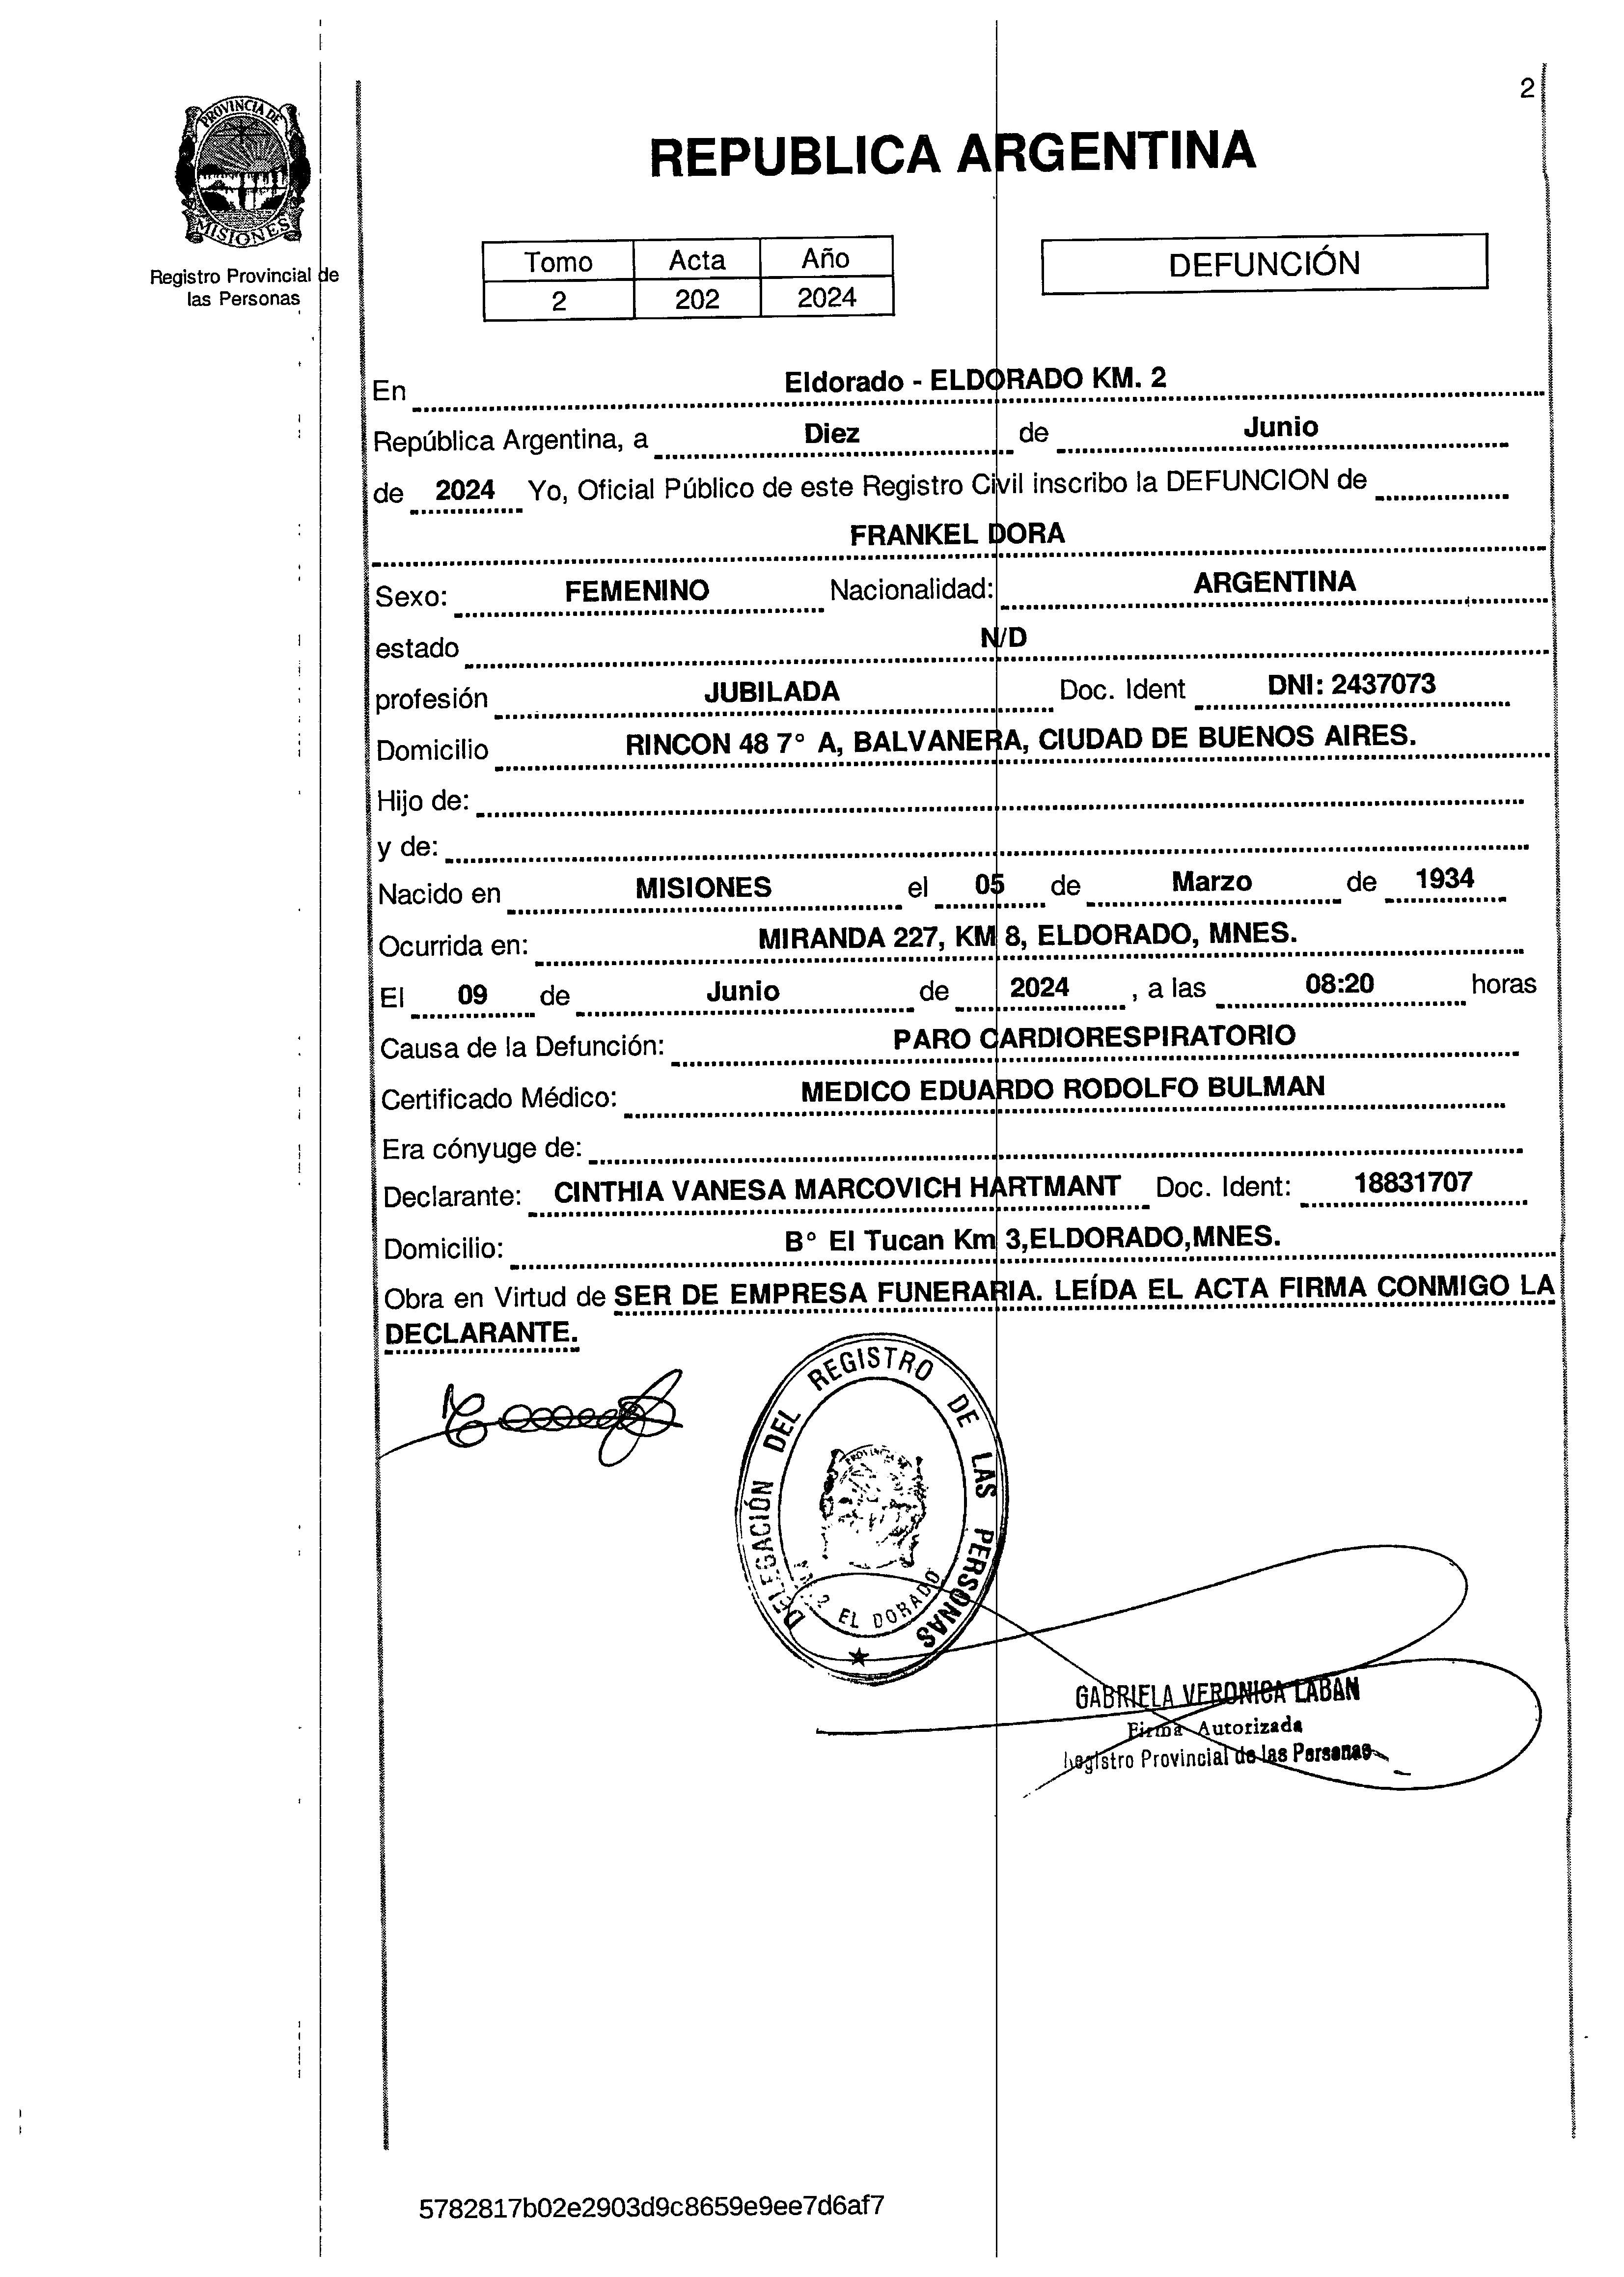 2
PROVINCIA DE
MISIONES
Registro Provincial de
las Personas
REPUBLICA ARGENTINA
Tomo Acta Año
2 202 2024
DEFUNCIÓN
En Eldorado - ELDORADO KM. 2
República Argentina, a Diez de Junio
de 2024 Yo, Oficial Público de este Registro Civil inscribo la DEFUNCION de
FRANKEL DORA
Sexo: FEMENINO Nacionalidad: ARGENTINA
estado N/D
profesión JUBILADA Doc. Ident DNI: 2437073
Domicilio RINCON 48 7° A, BALVANERA, CIUDAD DE BUENOS AIRES.
Hijo de:
y de:
Nacido en MISIONES el 05 de Marzo de 1934
Ocurrida en: MIRANDA 227, KM 8, ELDORADO, MNES.
El 09 de Junio de 2024 , a las 08:20 horas
Causa de la Defunción: PARO CARDIORESPIRATORIO
Certificado Médico: MEDICO EDUARDO RODOLFO BULMAN
Era cónyuge de:
Declarante: CINTHIA VANESA MARCOVICH HARTMANT Doc. Ident: 18831707
Domicilio: B° El Tucan Km 3,ELDORADO,MNES.
Obra en Virtud de SER DE EMPRESA FUNERARIA. LEÍDA EL ACTA FIRMA CONMIGO LA
DECLARANTE.
DELEGACIÓN DEL REGISTRO DE LAS PERSONAS
PROVINCIA DE
2 EL DORADO
GABRIELA VERONICA LABAN
Firma Autorizada
Registro Provincial de las Personas
5782817b02e2903d9c8659e9ee7d6af7